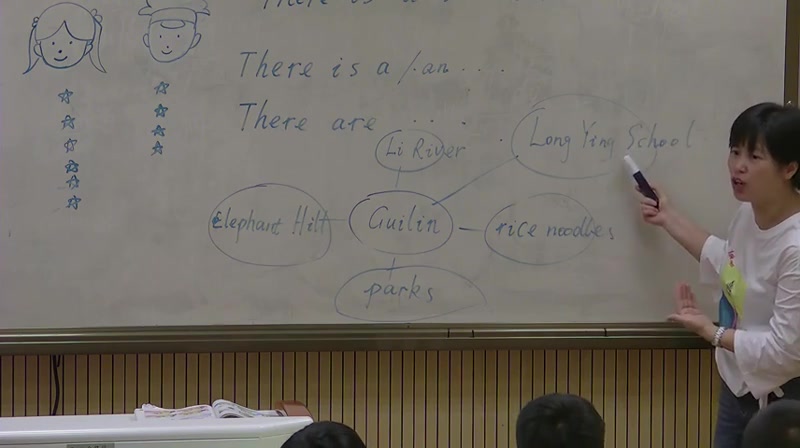 There is a
There is a /an ....
There are ...
Li River
Long Ying School
Elephant Hill
Guilin
rice noodles
parks